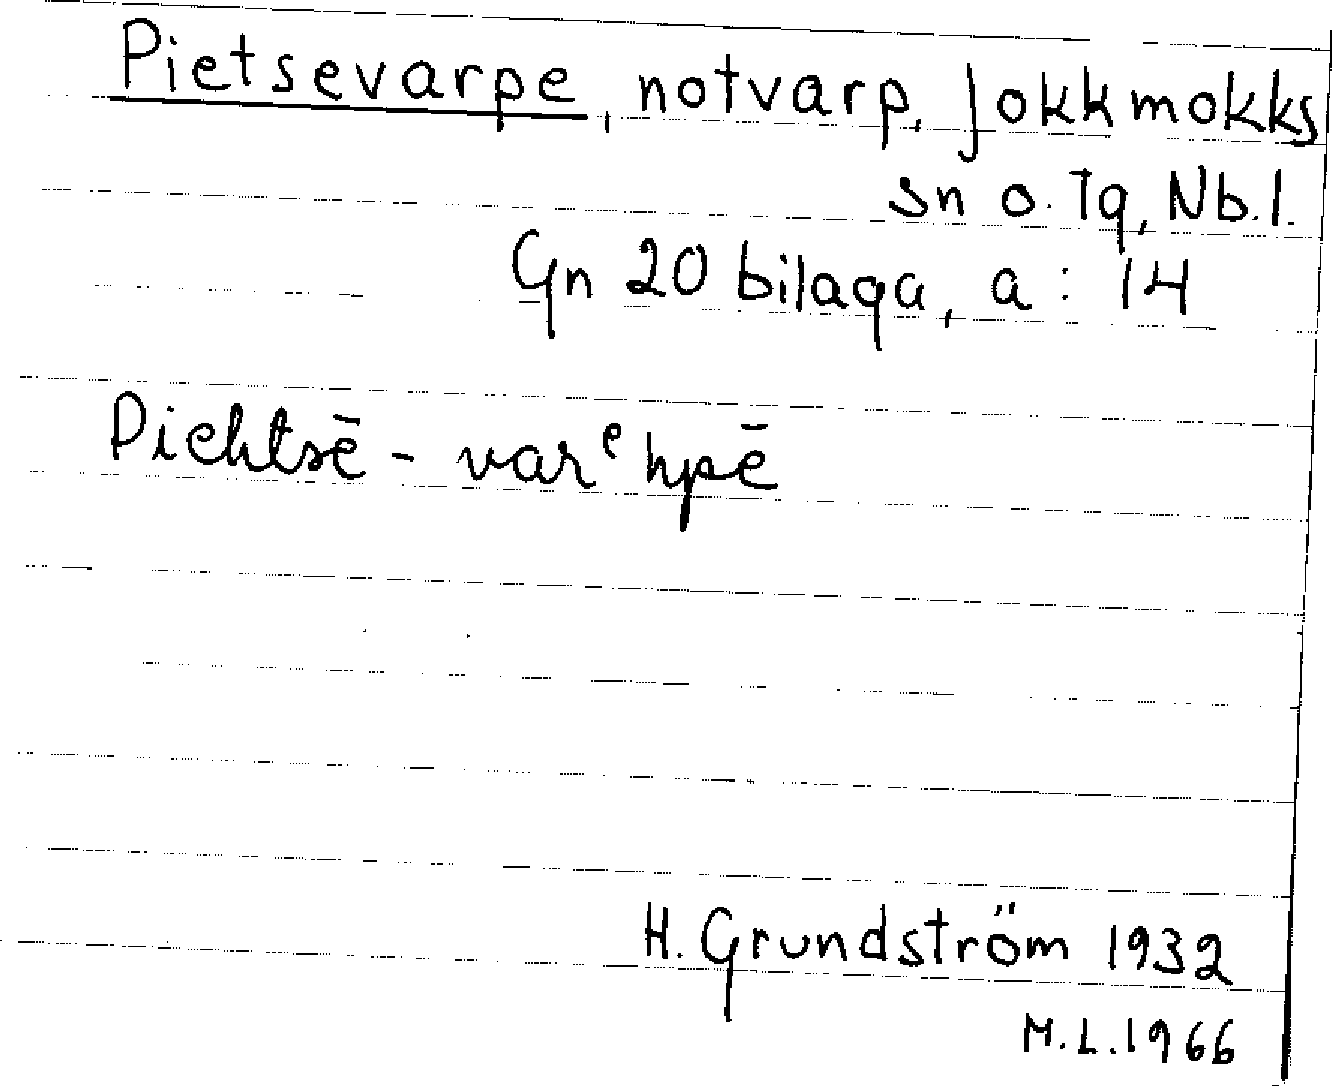 Pietsevarpe, notvarp, Jokkmokks
sn o. Tg, Nb. l.
Gn 20 bilaga, a : 14
Piehtsē - varᵉhpē
H. Grundström 1932
M.L. 1966